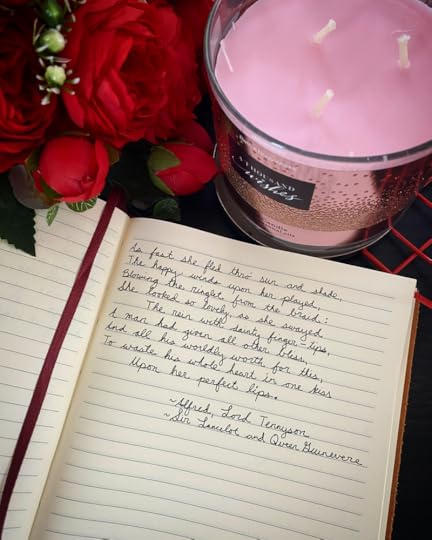 A THOUSAND
wishes
As fast she fled thro' sun and shade,
The happy winds upon her played,
Blowing the ringlet from the braid:
She looked so lovely, as she swayed
The rein with dainty finger-tips,
A man had given all other bliss,
And all his worldly worth for this,
To waste his whole heart in one kiss
Upon her perfect lips.
~Alfred, Lord Tennyson
~Sir Lancelot and Queen Guinevere